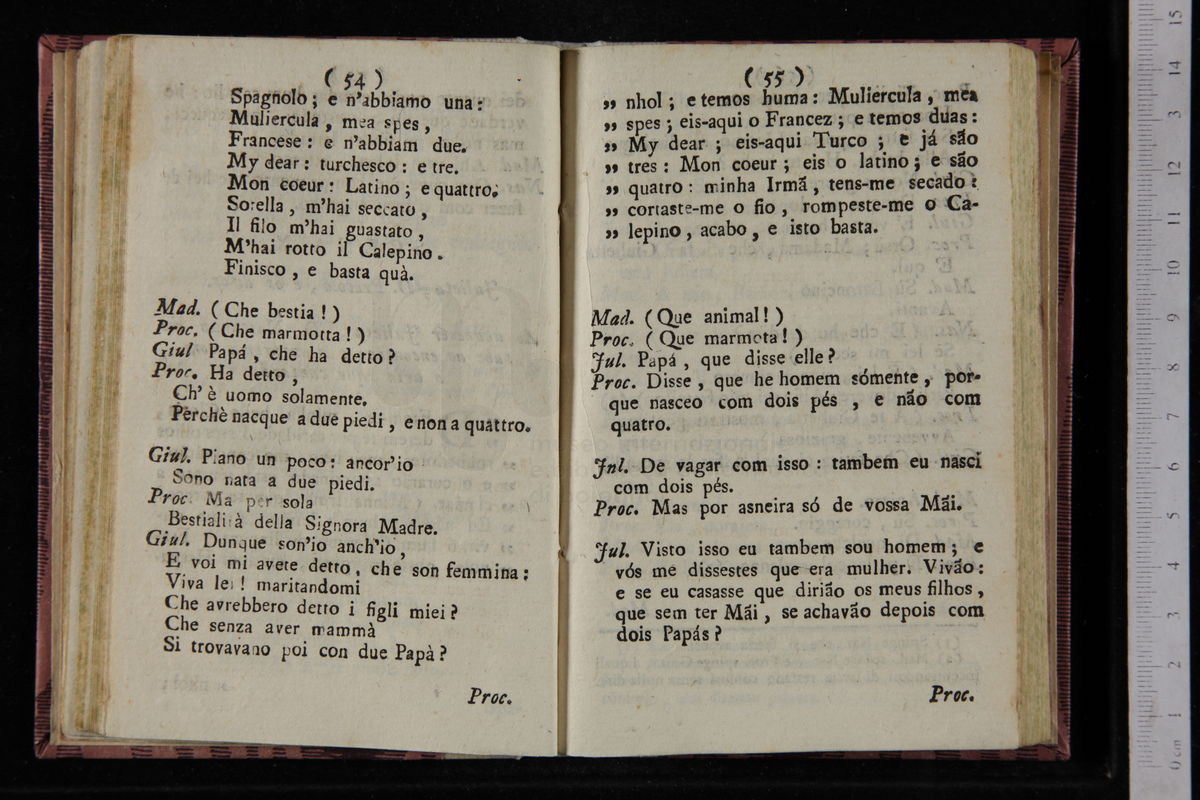 ( 54 )
Spagnolo ; e n'abbiamo una :
Muliercula , mea spes ,
Francese : e n'abbiam due.
My dear : turchesco : e tre.
Mon coeur : Latino ; e quattro;
Sorella , m'hai seccato ,
Il filo m'hai guastato ,
M'hai rotto il Calepino .
Finisco , e basta quà.
Mad. ( Che bestia ! )
Proc. ( Che marmotta ! )
Giul Papá , che ha detto ?
Proc. Ha detto ,
Ch' è uomo solamente.
Perchè nacque a due piedi , e non a quattro.
Giul. Piano un poco : ancor'io
Sono nata a due piedi.
Proc. Ma per sola
Bestialità della Signora Madre.
Giul. Dunque son'io anch'io ,
E voi mi avete detto , che son femmina :
Viva lei ! maritandomi
Che avrebbero detto i figli miei ?
Che senza aver mammà
Si trovavano poi con due Papà ?
Proc.
( 55 )
„ nhol ; e temos huma : Muliercula , mea
„ spes ; eis-aqui o Francez ; e temos duas :
„ My dear ; eis-aqui Turco ; e já são
„ tres : Mon coeur ; eis o latino ; e são
„ quatro : minha Irmã , tens-me secado :
„ cortaste-me o fio , rompeste-me o Ca-
„ lepino , acabo , e isto basta.
Mad. ( Que animal ! )
Proc. ( Que marmota ! )
Jul. Papá , que disse elle ?
Proc. Disse , que he homem sómente , por-
que nasceo com dois pés , e não com
quatro.
Jnl. De vagar com isso : tambem eu nasci
com dois pés.
Proc. Mas por asneira só de vossa Mãi.
Jul. Visto isso eu tambem sou homem ; e
vós me dissestes que era mulher. Vivão :
e se eu casasse que dirião os meus filhos ,
que sem ter Mãi , se achavão depois com
dois Papás ?
Proc.
0 cm 1 2 3 4 5 6 7 8 9 10 11 12 13 14 15